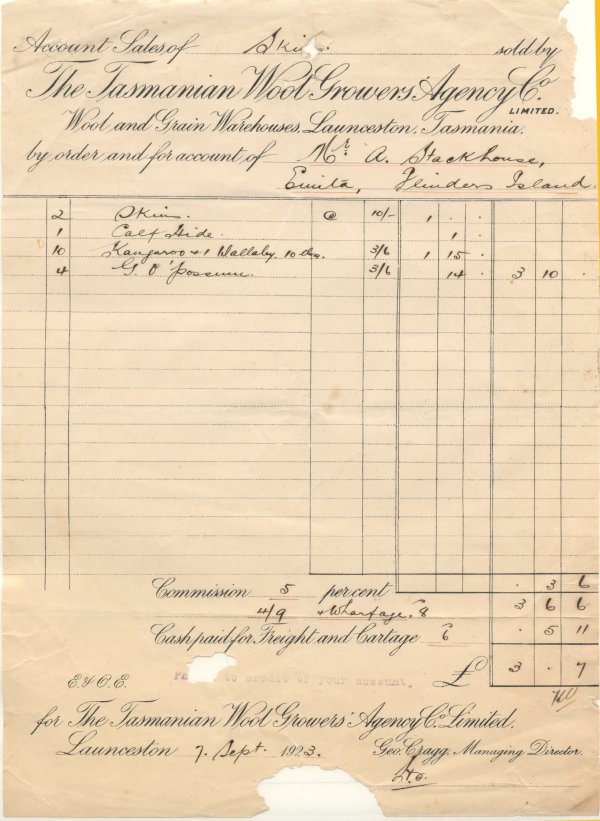 Account Sales of Skins. sold by
The Tasmanian Wool Growers' Agency Co.
LIMITED.
Wool and Grain Warehouses, Launceston, Tasmania.
by order and for account of Mr. A. Stackhouse,
Emita, Flinders Island.
2 Skins. @ 10/- 1 . .
1 Calf Hide. 1 .
10 Kangaroo & 1 Wallaby. 10 lbs. 3/6 1 15 .
4 G. O'possum. 3/6 14 . 3 10 .
Commission 5 per cent . 3 6
4/9 & Wharfage. 8 3 6 6
Cash paid for Freight and Cartage 6 . 5 11
to credit of your account. £ 3 . 7
E. & O. E.
for The Tasmanian Wool Growers' Agency Co. Limited.
Launceston 7. Sept. 1923. Geo. Cragg. Managing Director.